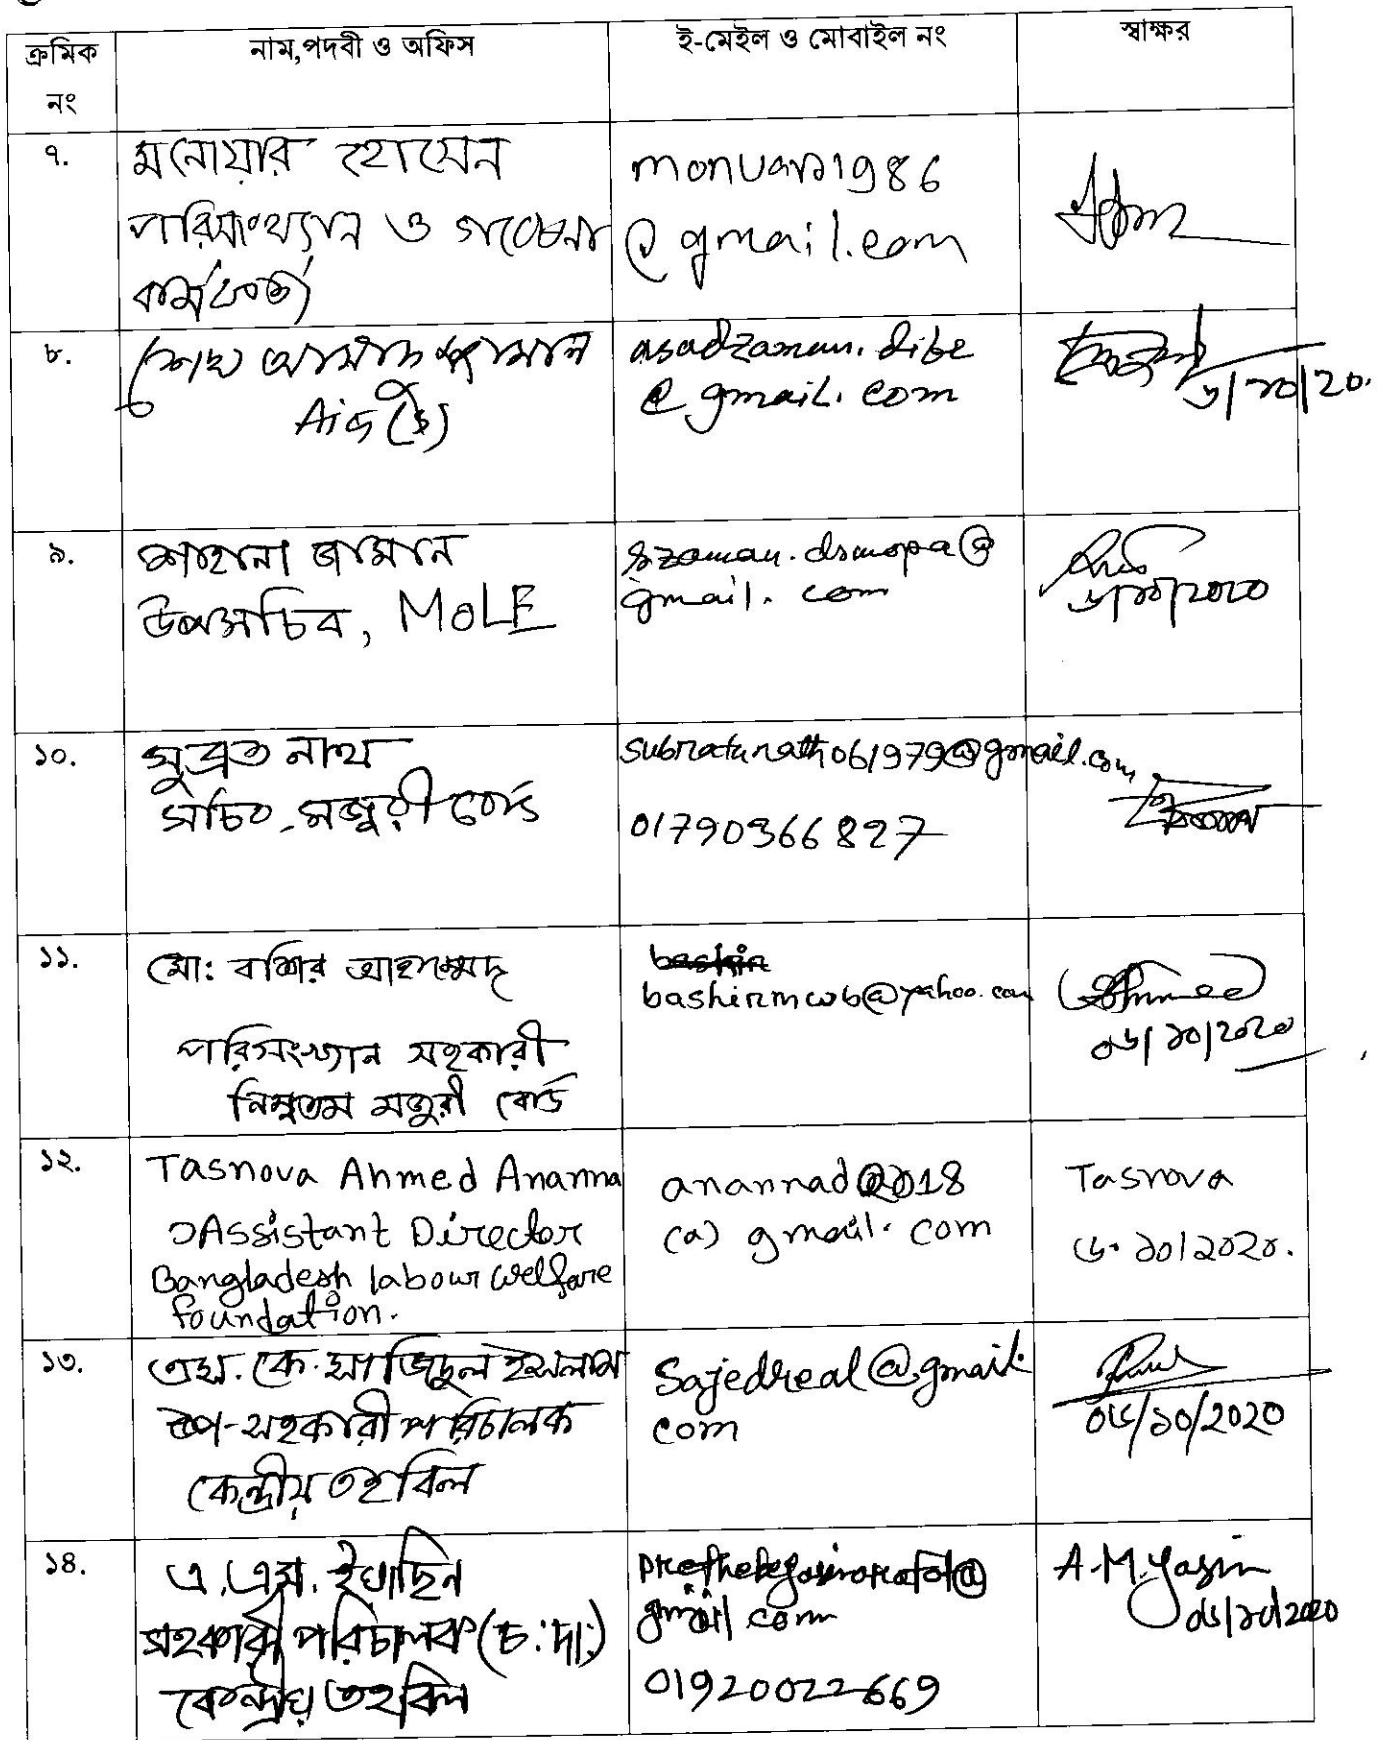 ক্রমিক নং
নাম,পদবী ও অফিস
ই-মেইল ও মোবাইল নং
স্বাক্ষর
৭.
মনোয়ার হোসেন
পরিসংখ্যান ও গবেষনা
কর্মকর্তা
monuar1986
@gmail.com
৮.
শেখ আসাদুজ্জামান
asadzaman.dife
@gmail.com
৬/১০/২০.
৯.
শাহানা জামান
উপসচিব, MoLE
szaman.dsmopa@
gmail.com
৬/১০/২০২০
১০.
সুব্রত নাথ
সচিব, মজুরী বোর্ড
subratanath061979@gmail.com
01790366827
১১.
মো: বশির আহাম্মেদ
পরিসংখ্যান সহকারী
নিম্নতম মজুরী বোর্ড
bashirmwb@yahoo.com
০৬/১০/২০২০
১২.
Tasnova Ahmed Ananna
Assistant Director
Bangladesh labour welfare
foundation.
(a) gmail.com
Tasnova
৬.১০/২০২০.
১৩.
এস.কে.সাজিদুল ইসলাম
উপ-সহকারী পরিচালক
কেন্দ্রীয় তহবিল
Sajedreal@gmail.
com
০৬/১০/২০২০
১৪.
এ.এম. ইয়াছিন
সহকারী পরিচালক (চ:দা:)
কেন্দ্রীয় তহবিল
gmail.com
01920022669
A.M.Yasin
০৬/১০/২০২০